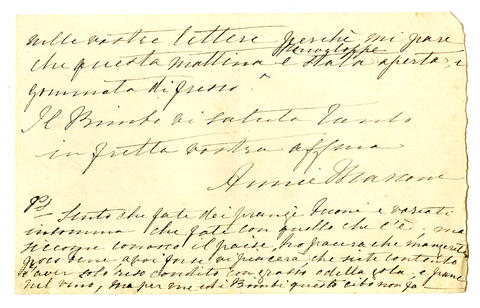 nelle vostre lettere perchè mi pare
che questa mattina l'enveloppe è stata aperta, e
gommata di fresco.
Il Bimbo vi saluta tanto
in fretta vostra affma
Annie
PS Sento che fate dei pranzi buoni e variati
insomma che fate con quello che c'è, ma
siccome conosco il paese, ho paura che mangerete
poco bene a voi forse vi piacerà, che siete contento
d'aver solo riso condito con grasso o della gola, e pane
nel vino, ma per me ed i Bimbi questo cibo non fa